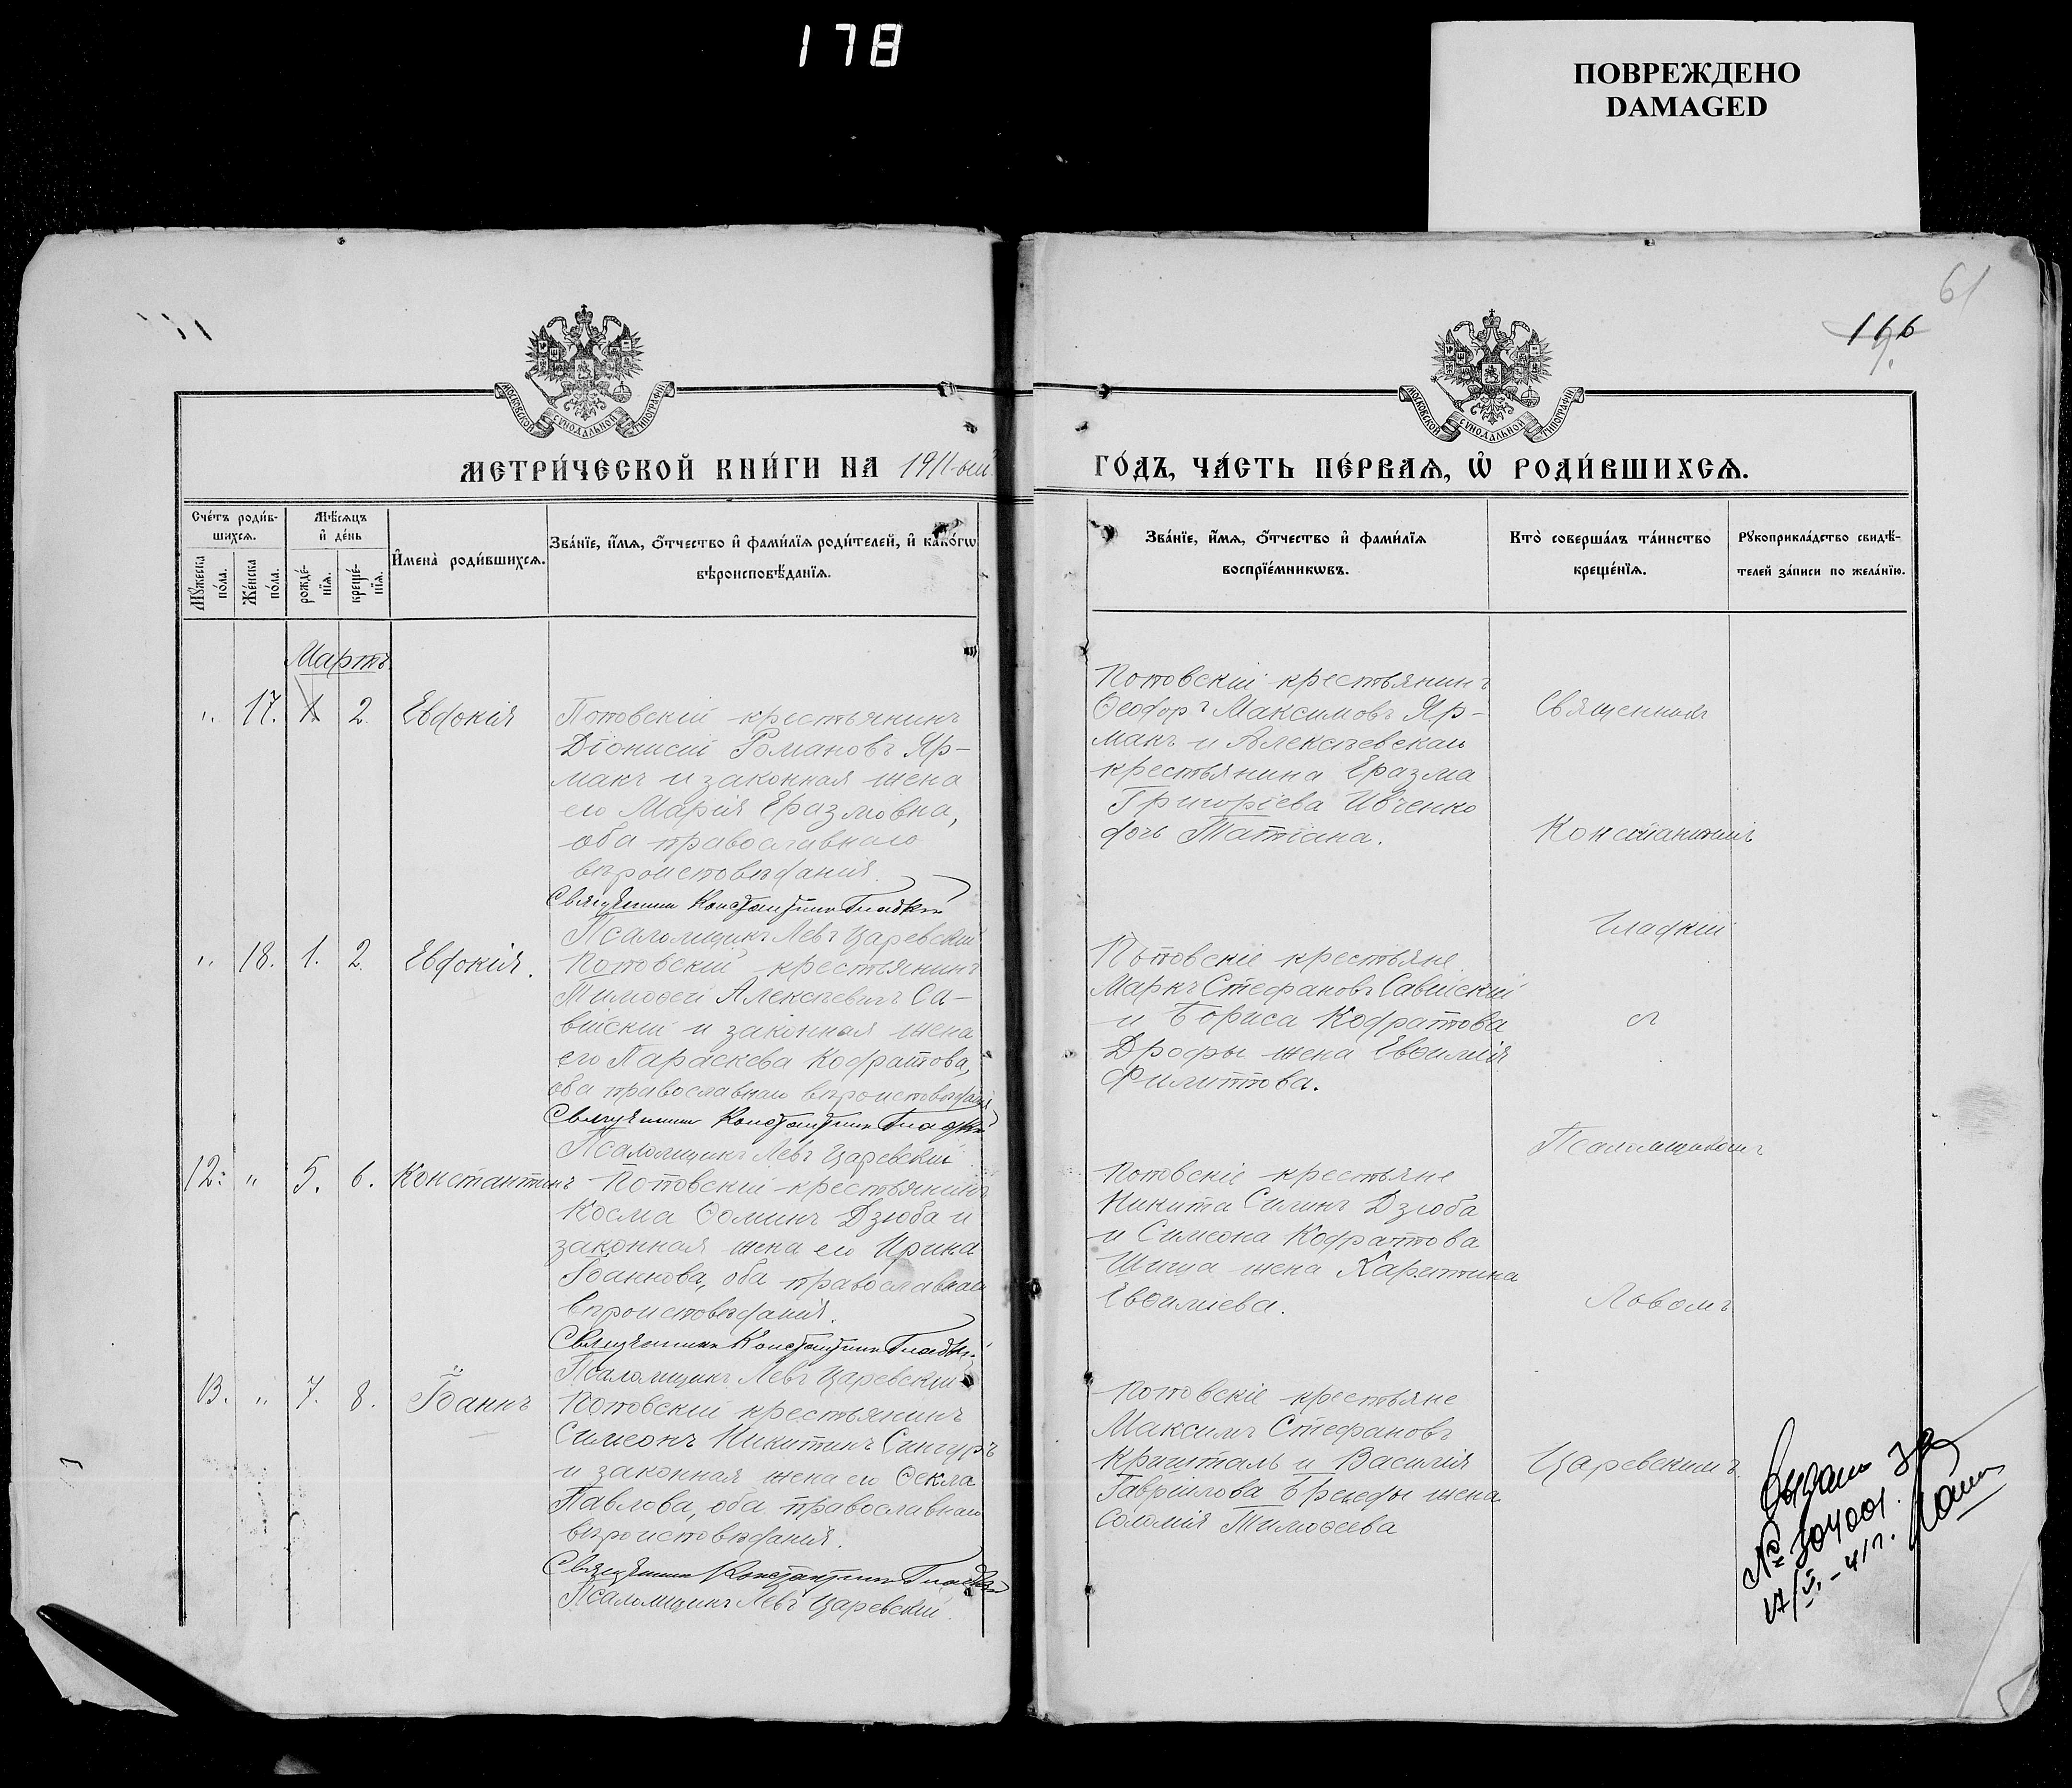 178
ПОВРЕЖДЕНО
DAMAGED
61
166
9.
МОСКОВСКОЙ СѴНОДАЛЬНОЙ ТИПОГРАФІИ
МОСКОВСКОЙ СѴНОДАЛЬНОЙ ТИПОГРАФІИ
МЕТРИ́ЧЕСКОЙ КНИ́ГИ НА 1911-ый
ГО́ДЪ, ЧА́СТЬ ПЕ́РВАѦ, Ѡ҆ РОДИ́ВШИХСѦ.
Сче́тъ роди́в-
шихсѧ.
Мꙋ́жеска по́ла.
Же́нска по́ла.
Мѣ́сѧцъ
и҆ де́нь
рожде́-
нїѧ.
креще́-
нїѧ.
И҆мена̀ роди́вшихсѧ.
Зва́нїе, и҆́мѧ, ѻ҆́тчество и҆ фами́лїѧ роди́телей, и҆ како́гѡ
вѣроисповѣ́данїѧ.
Зва́нїе, и҆́мѧ, ѻ҆́тчество и҆ фами́лїѧ
воспрїе́мникѡвъ.
Кто̀ соверша́лъ та́инство
креще́нїѧ.
Рꙋкоприкла́дство свидѣ́-
телей за́писи по жела́нїю.
Мартъ
„ 17. 1. 2. Евдокія
Потовскій крестьянинъ
Діонисій Романовъ Яр-
макъ и законная жена
его Марія Еразмовна,
оба православнаго
вѣроисповѣданія.
Священникъ Константинъ Гладкій
Псаломщикъ Левъ Царевскій
Потовскій крестьянинъ
Ѳеодоръ Максимовъ Яр-
макъ и Алексѣевскаго
крестьянина Еразма
Григоріева Ивченко
дочь Татіана.
Священникъ
Константинъ
Гладкій
„ 18. 1. 2. Евдокія.
Потовскій крестьянинъ
Тимоѳей Алексѣевичъ Са-
війскій и законная жена
его Параскева Кодратова,
оба православнаго вѣроисповѣданія
Священникъ Константинъ Гладкій
Псаломщикъ Левъ Царевскій
Потовскіе крестьяне
Маркъ Стефановъ Савійскій
и Бориса Кодратова
Дрофы жена Евѳимія
Филиппова.
съ
Псаломщикомъ
12. „ 5. 6. Константинъ
Потовскій крестьянинъ
Косма Ѳоминъ Дзюба и
законная жена его Ирина
Іоаннова, оба православнаго
вѣроисповѣданія.
Священникъ Константинъ Гладкій
Псаломщикъ Левъ Царевскій
Потовскіе крестьяне
Никита Силинъ Дзюба
и Симеона Кодратова
Шиша жена Харитина
Евѳиміева.
Львомъ
13. „ 7. 8. Іоаннъ
Потовскій крестьянинъ
Симеонъ Никитинъ Сингуръ
и законная жена его Ѳекла
Павлова, оба православнаго
вѣроисповѣданія.
Священникъ Константинъ Гладкій
Псаломщикъ Левъ Царевскій.
Потовскіе крестьяне
Максимъ Стефановъ
Кришталь и Василія
Гавріилова Бренды жена
Соломія Тимоѳеева
Царевскимъ
№ 304001.